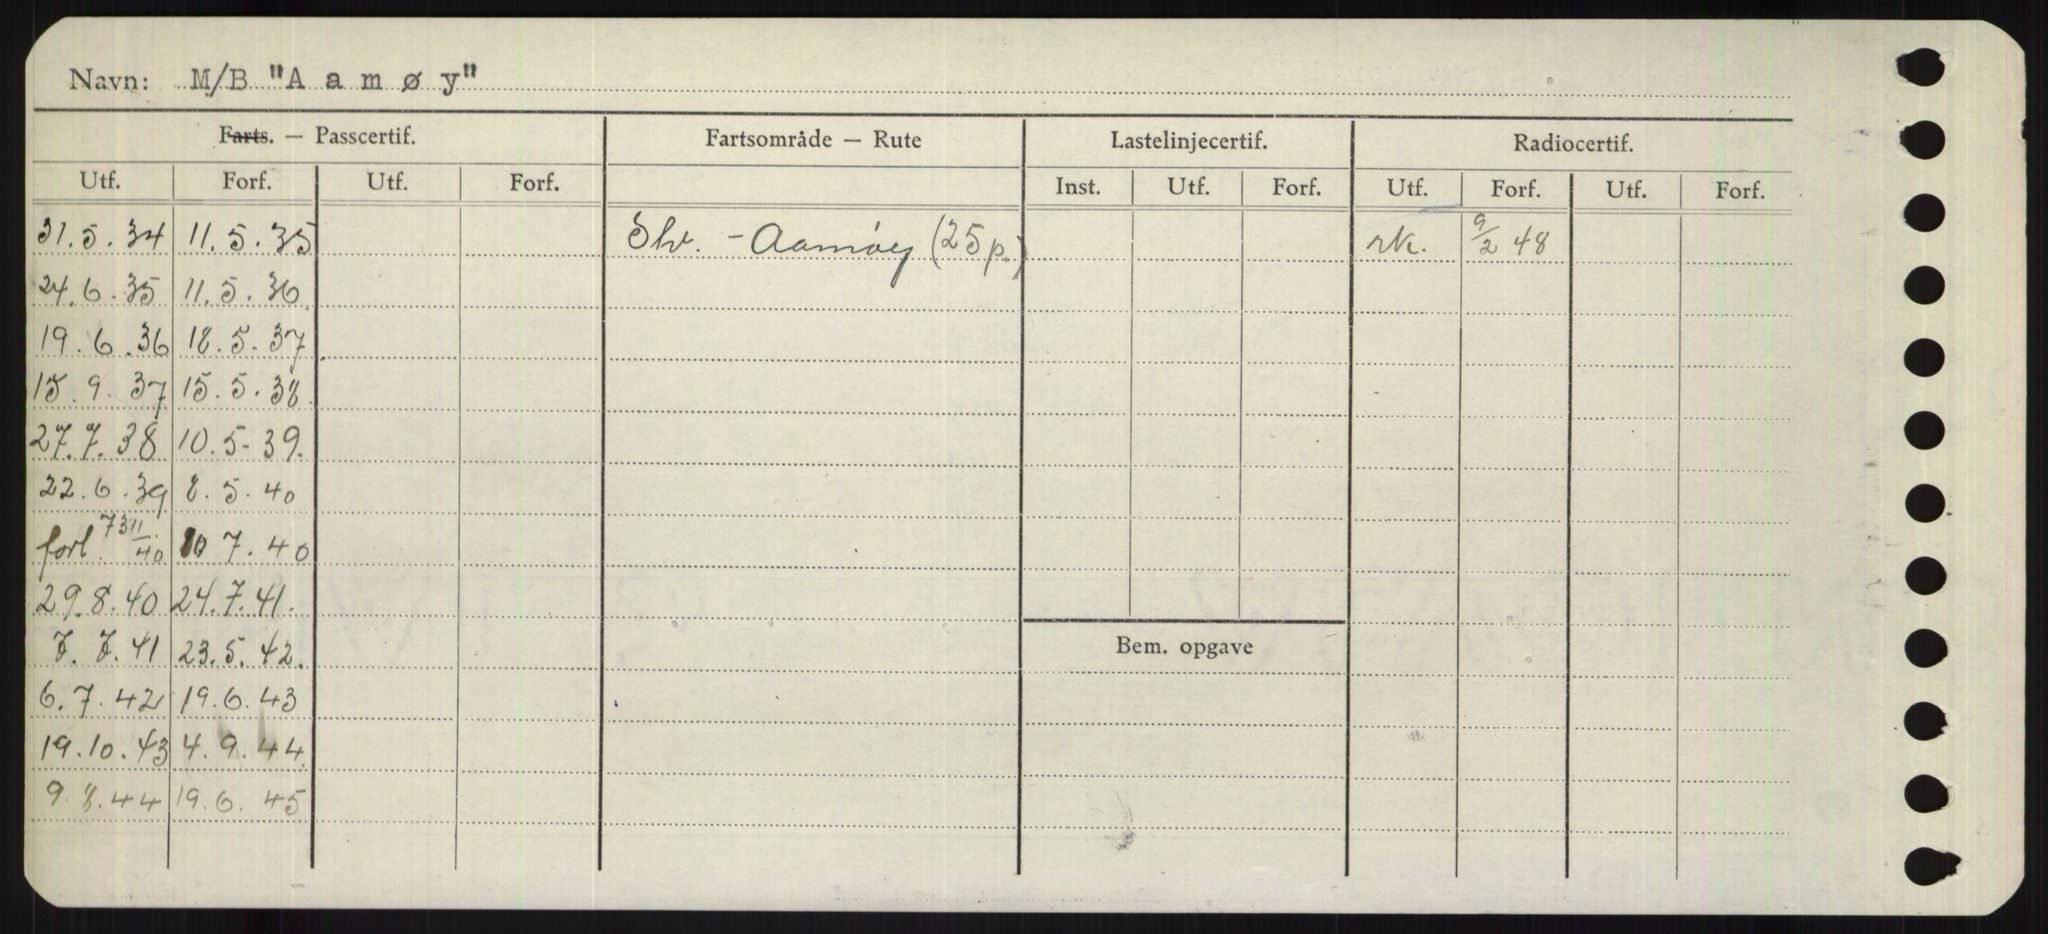 Navn: M/B "Aamøy"
Farts. — Passcertif. Fartsområde — Rute Lastelinjecertif. Radiocertif.
Utf. Forf. Utf. Forf. Inst. Utf. Forf. Utf. Forf. Utf. Forf.
31.5.34 11.5.35 – Aamøy (25 p.) rk. 9/2 48
24.6.35 11.5.36
19.6.36 18.5.37
15.9.37 15.5.38
27.7.38 10.5-39.
22.6.39 8.5.40
forl. 40 10 7.40
29.8.40 24.7.41.
7.7.41 23.5.42.
Bem. opgave
6.7.42 19.6.43
19.10.43 4.9.44
9.8.44 19.6.45